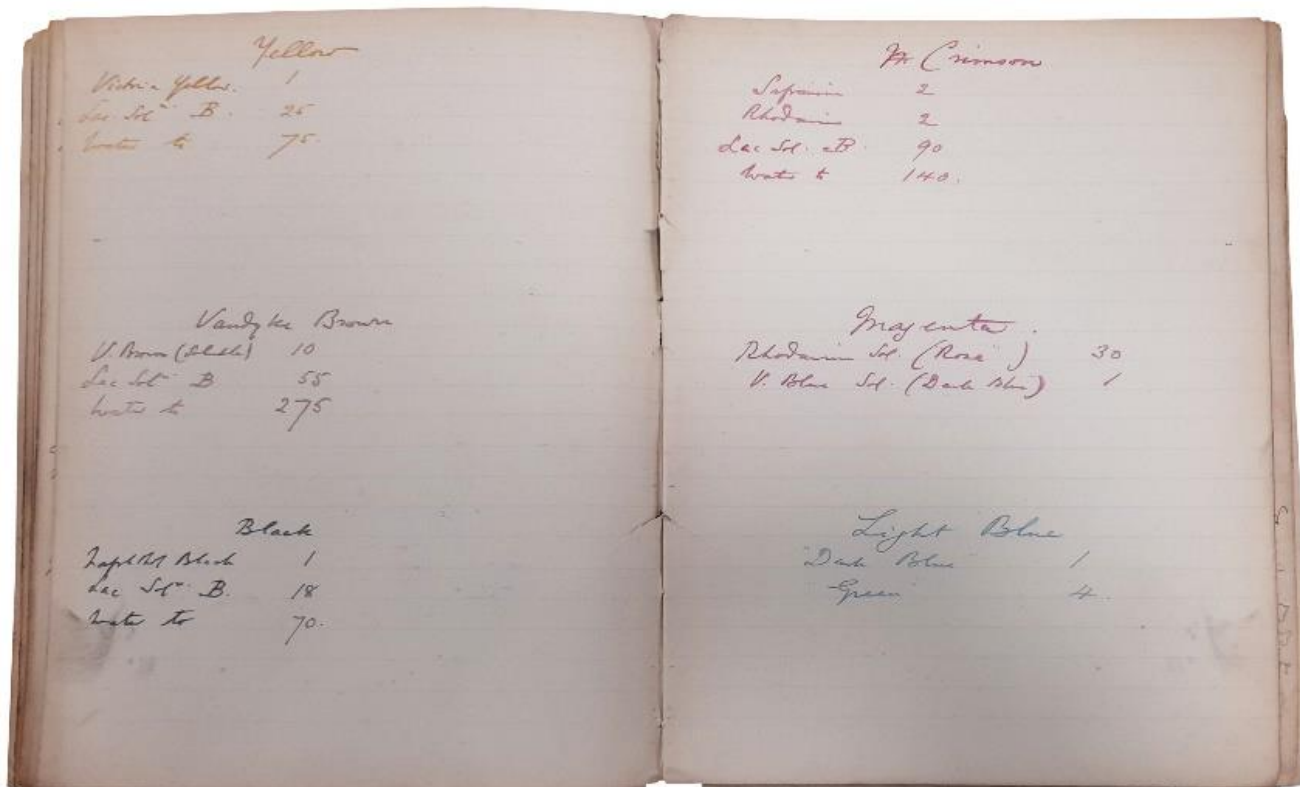 Yellow
Victoria Yellow. 1
Lac Solⁿ B. 25
Water to 75.
Vandyke Brown
V. Brown (Soluble) 10
Lac Solⁿ B 55
Water to 275
Black
Black 1
Lac Solⁿ B. 18
Water to 70.
Crimson
Safranin 2
Rhodamin 2
Lac Sol. B. 90
Water to 140.
Magenta.
Rhodamin Sol. (Rose) 30
V. Blue Sol. (Dark Blue) 1
Light Blue
Dark Blue 1
Green 4.